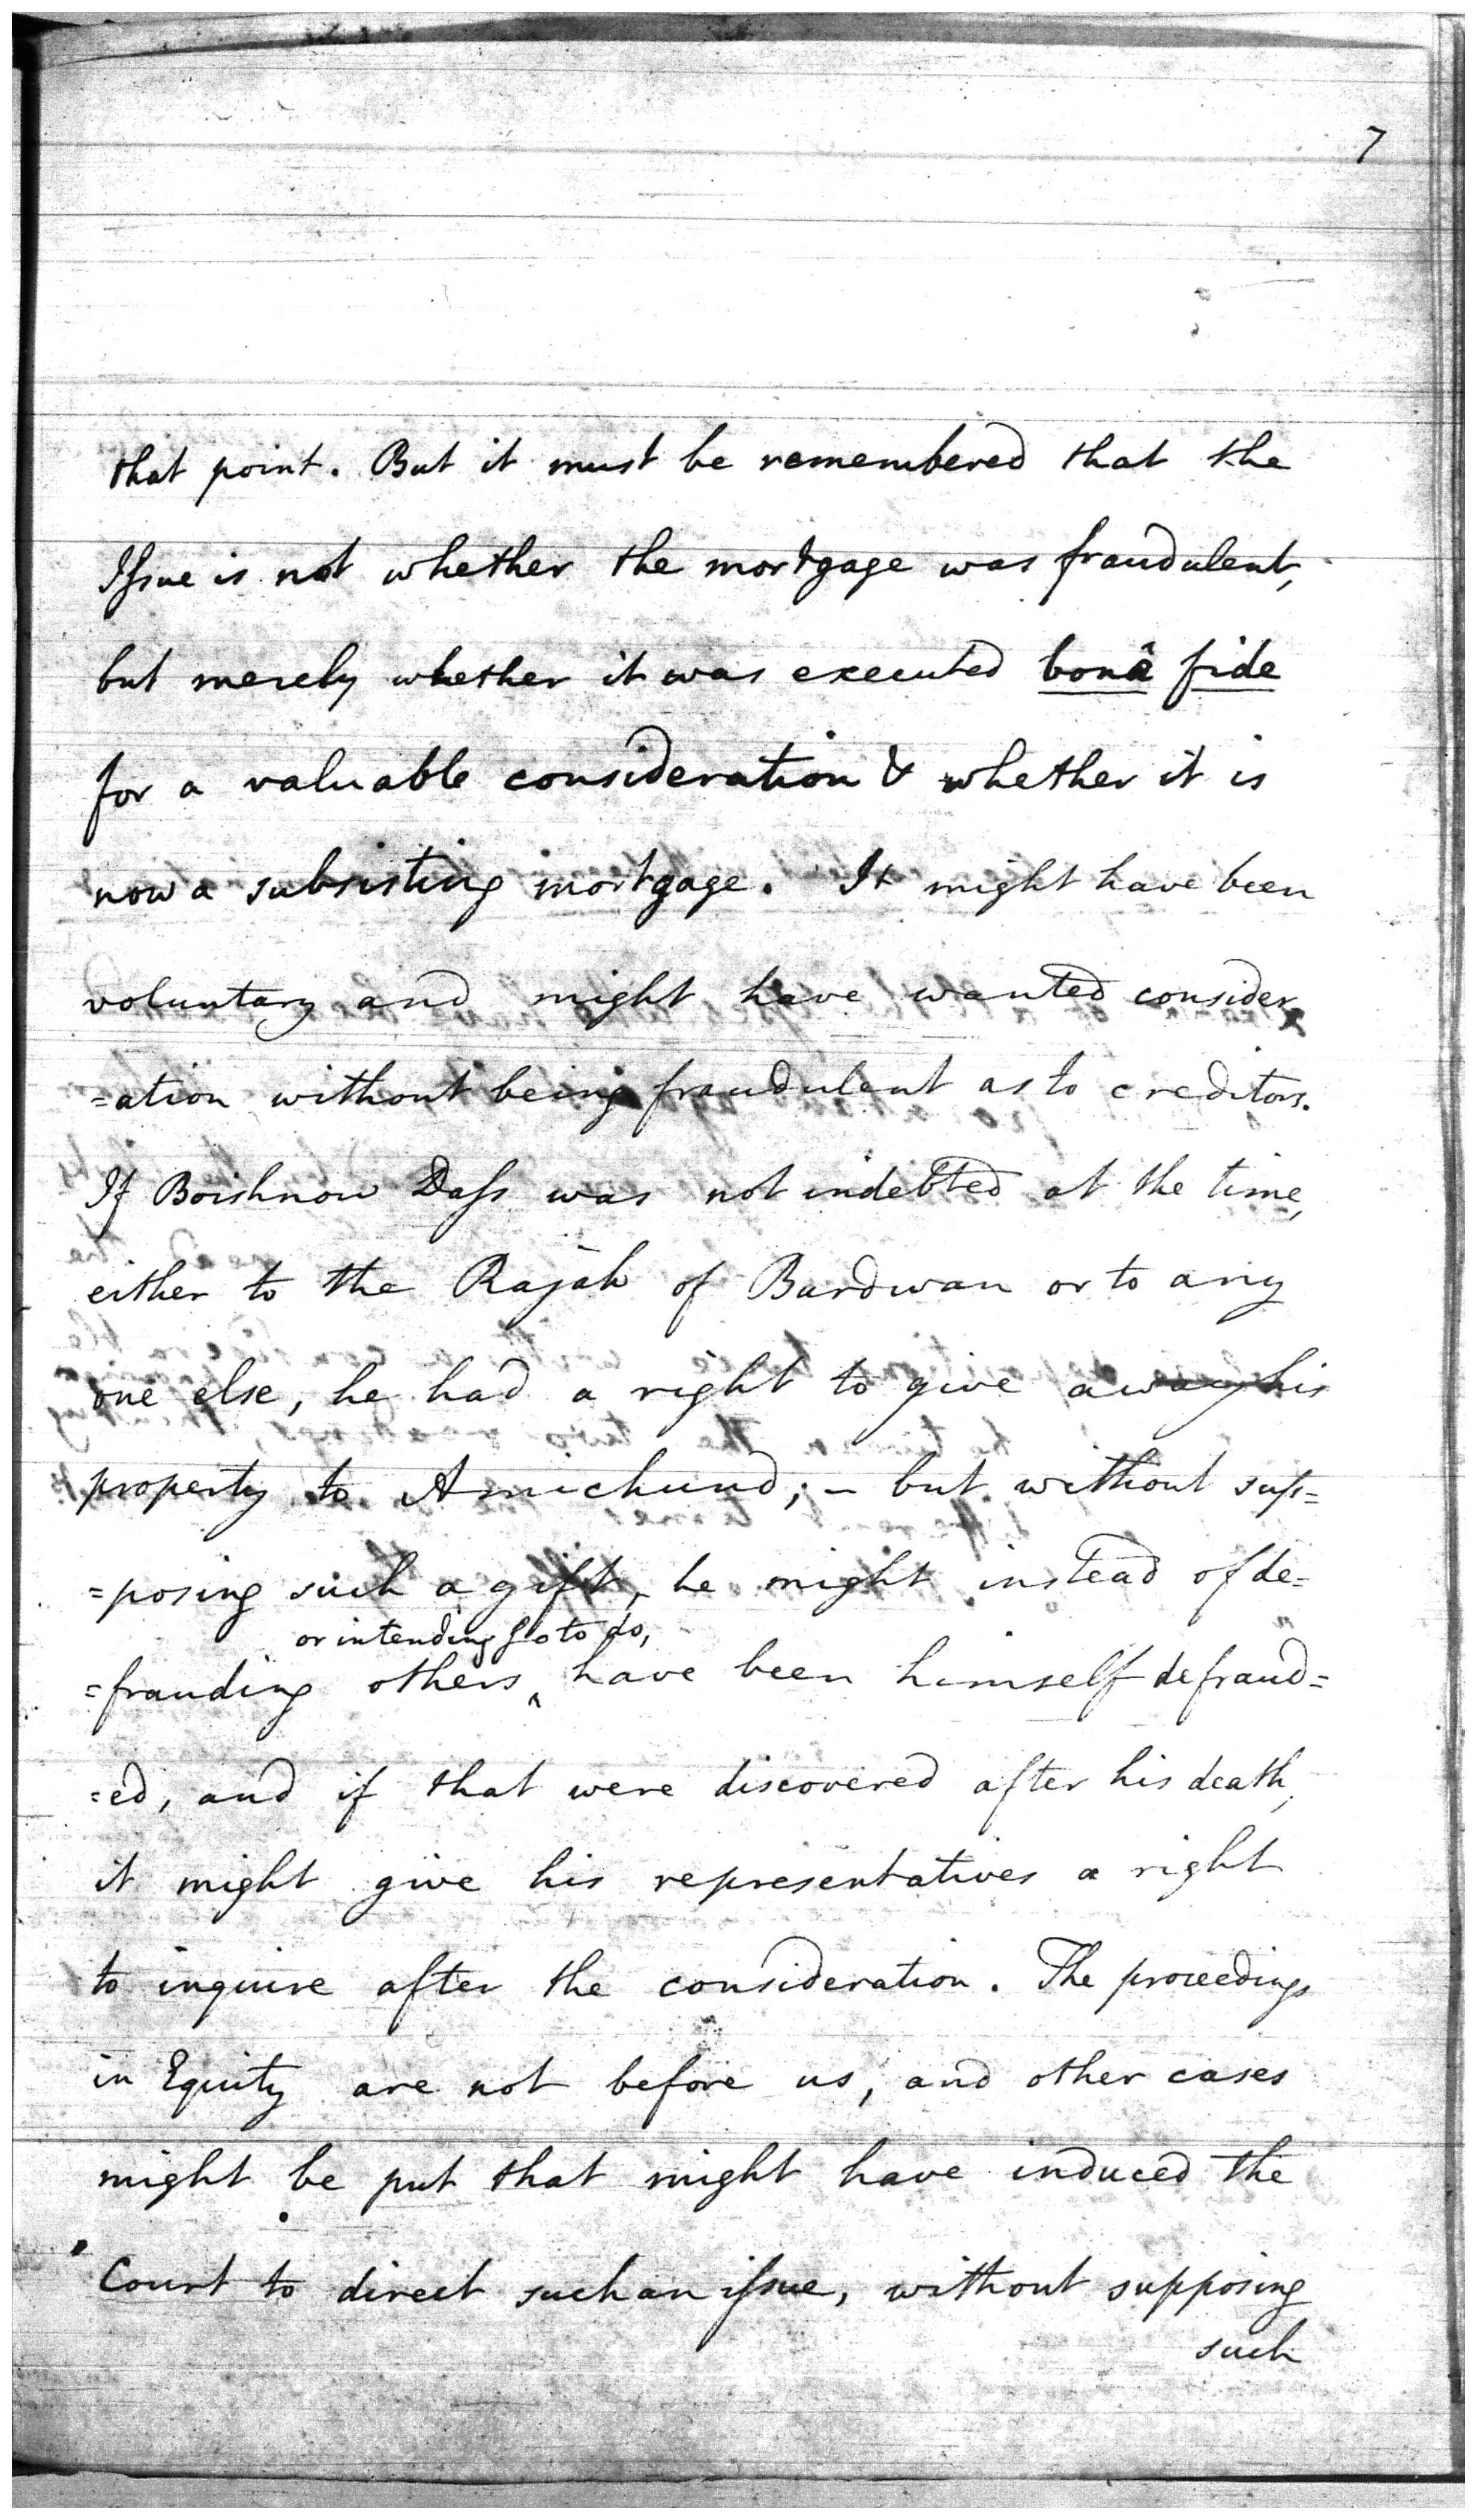 7
that point. But it must be remembered that the
Issue is not whether the mortgage was fraudulent,
but merely whether it was executed bonâ fide
for a valuable consideration & whether it is
now a subsisting mortgage. It might have been
voluntary and might have wanted consider
=ation without being fraudulent as to creditors.
If Boishnow Dass was not indebted at the time,
either to the Rajah of Bardwan or to any
one else, he had a right to give away his
property to Amichund; – but without sup=
=posing such a gift, he might instead of de=
or intending so to do,
=frauding others ‸ have been himself defraud=
=ed, and if that were discovered after his death,
it might give his representatives a right
to inquire after the consideration. The proceedings
in Equity are not before us, and other cases
might be put that might have induced the
Court to direct such an issue, without supposing
such